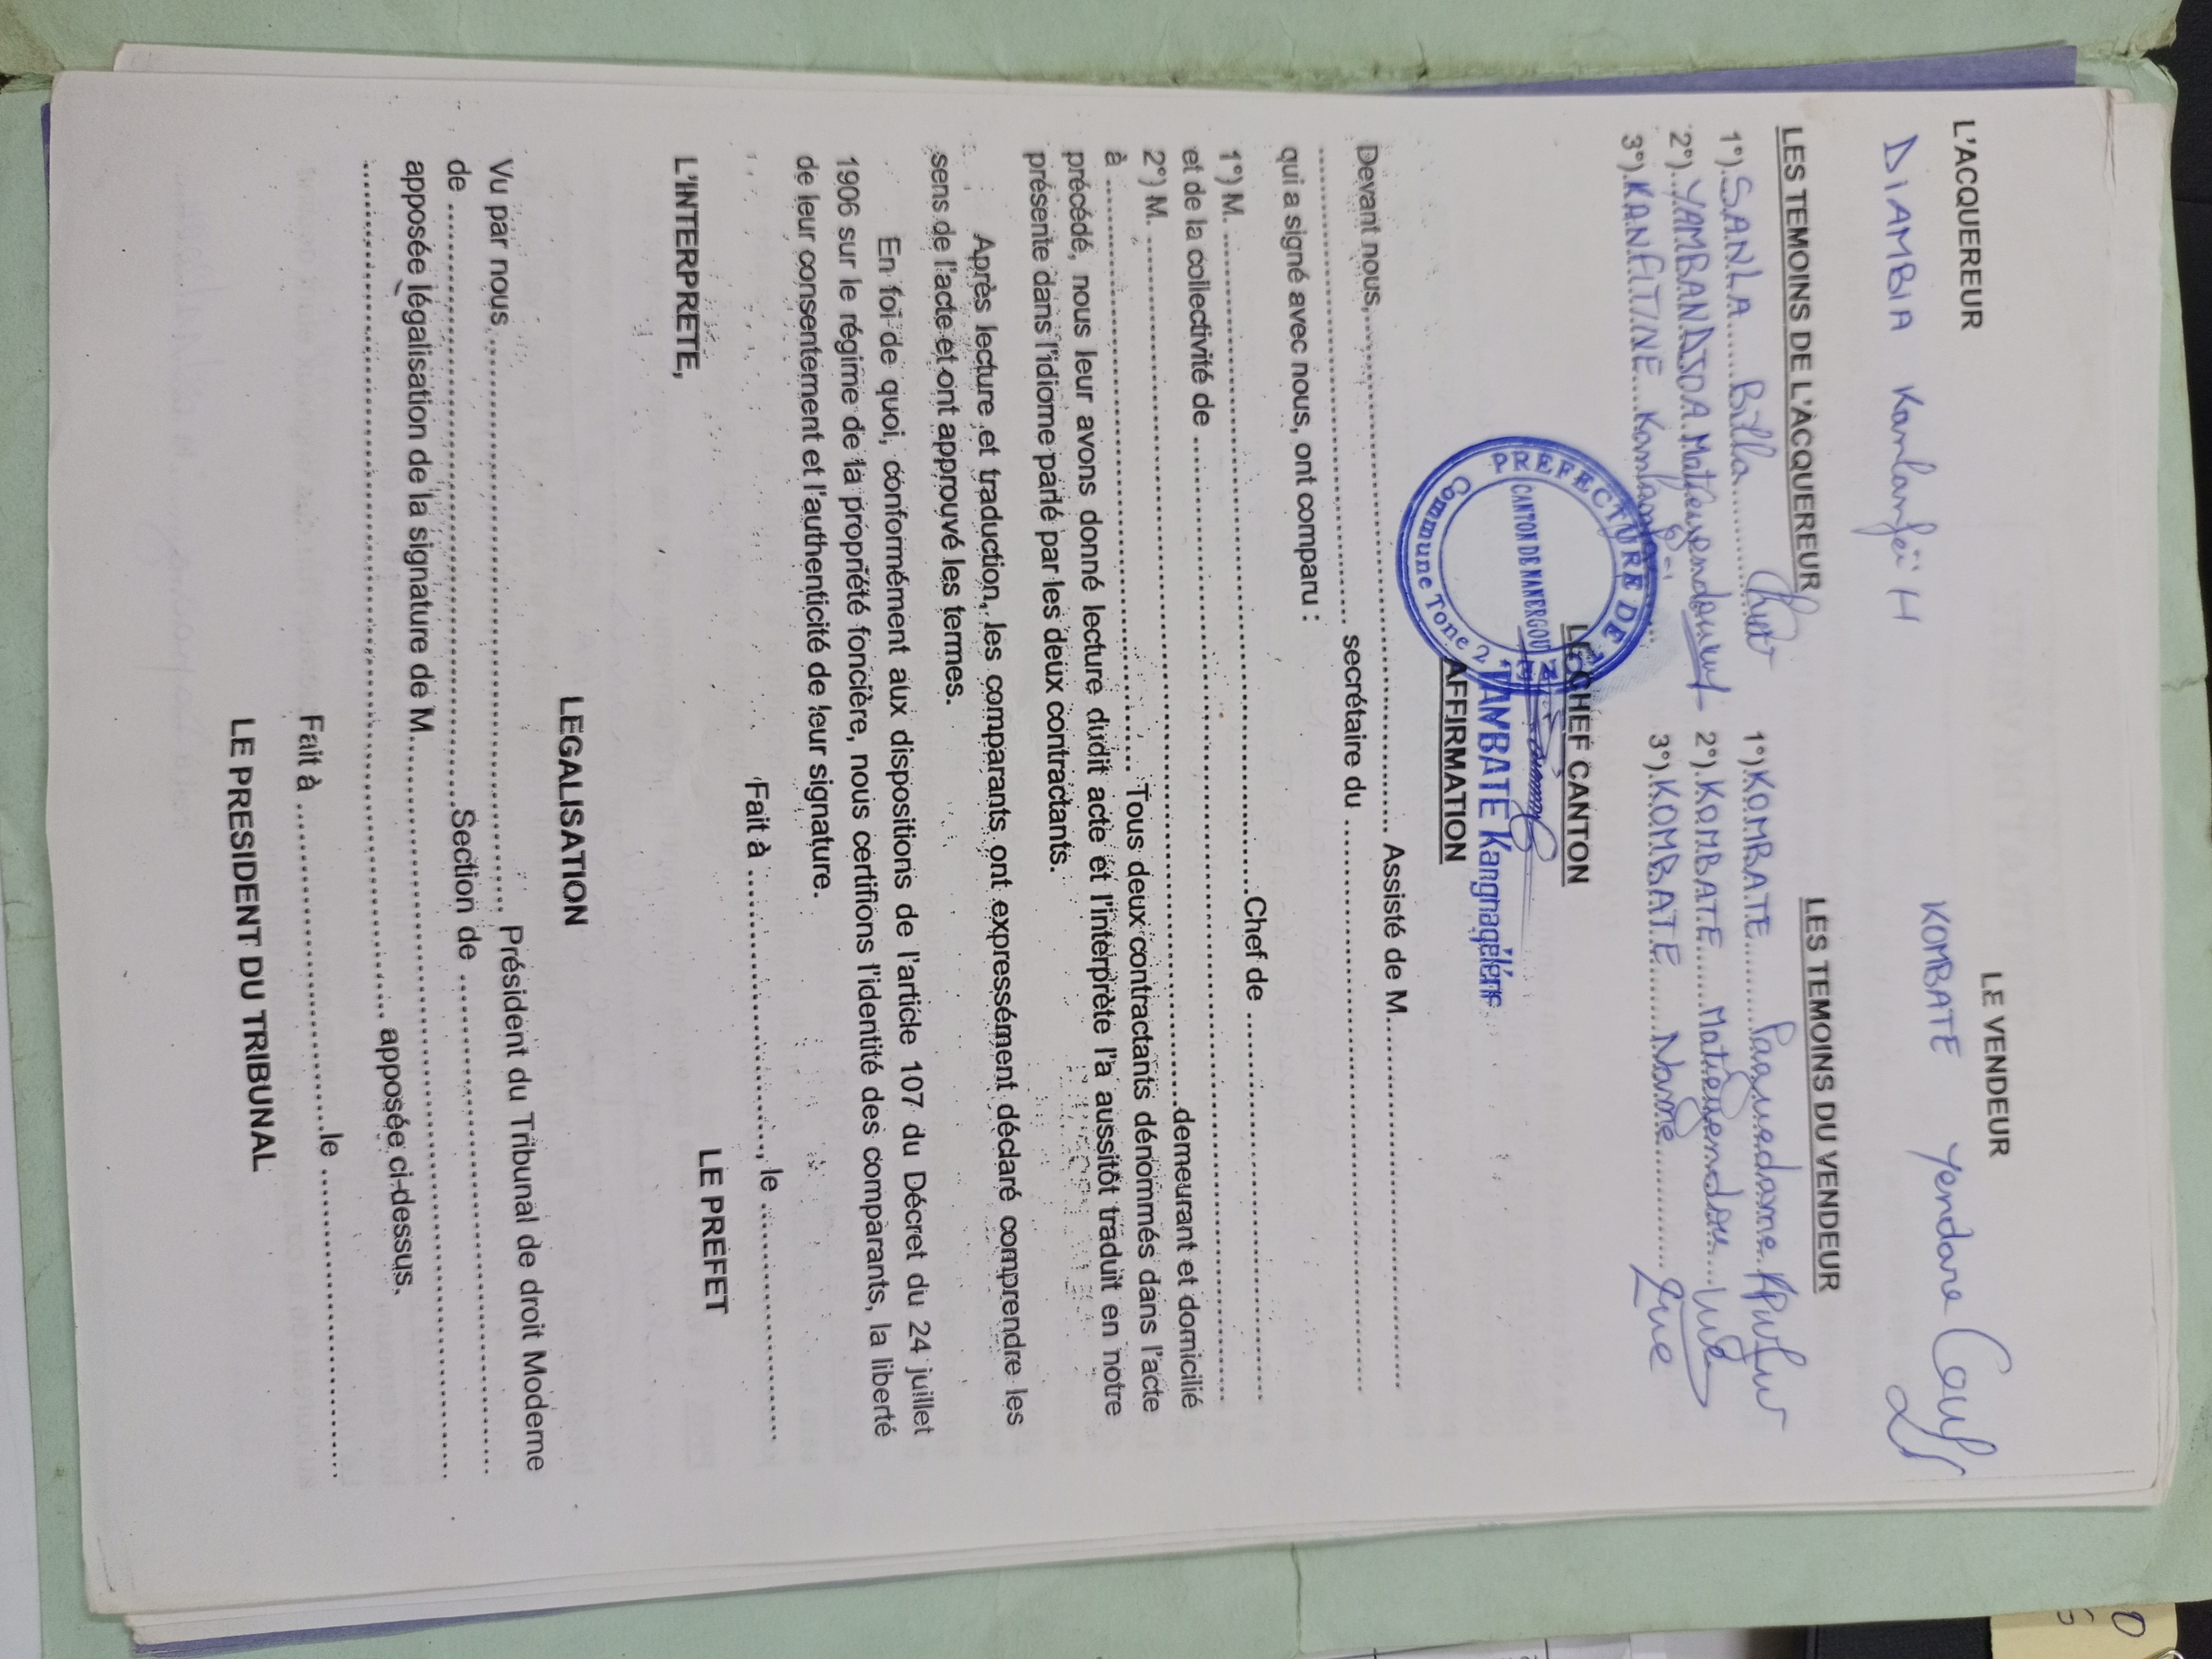 L'ACQUEREUR
LE VENDEUR
DIAMBIA Kanlanfëi H
KOMBATE Yendare
LES TEMOINS DE L'ACQUEREUR
LES TEMOINS DU VENDEUR
1°).SANLA......Billa............
1°)KOMBATE.........Paguedame
2°).YAMBANDJOA.Matieyendou
2°).KOMBATE......Matieyendou....
3°).KANFITINE....Kanlanfei
3°).KOMBATE.......Nayme............
LE CHEF CANTON
PREFECTURE DE
CANTON DE NANERGOU
Commune Tone 2
TANBATE Kangnagéléne
AFFIRMATION
Devant nous,.................................................................. Assisté de M..................................................
................................................................ secrétaire du ..................................................................
qui a signé avec nous, ont comparu :
1°) M. ..................................................................................Chef de ..................................................
et de la collectivité de ..................................................................................................................
2°) M. ............................................................................................demeurant et domicilié
à ..........................................................................Tous deux contractants dénommés dans l'acte
précédé, nous leur avons donné lecture dudit acte et l'interprète l'a aussitôt traduit en notre
présente dans l'idiome parlé par les deux contractants.
Après lecture et traduction, les comparants ont expressément déclaré comprendre les
sens de l'acte et ont approuvé les termes.
En foi de quoi, conformément aux dispositions de l'article 107 du Décret du 24 juillet
1906 sur le régime de la propriété foncière, nous certifions l'identité des comparants, la liberté
de leur consentement et l'authenticité de leur signature.
Fait à ..................................., le ..............................
L'INTERPRETE,
LE PREFET
LEGALISATION
Vu par nous .......................................................................... Président du Tribunal de droit Moderne
de ..........................................................................Section de ..................................................................
apposée légalisation de la signature de M..................................................................................................
.......................................................................................................... apposée ci-dessus.
Fait à ..........................................le ..........................................
LE PRESIDENT DU TRIBUNAL